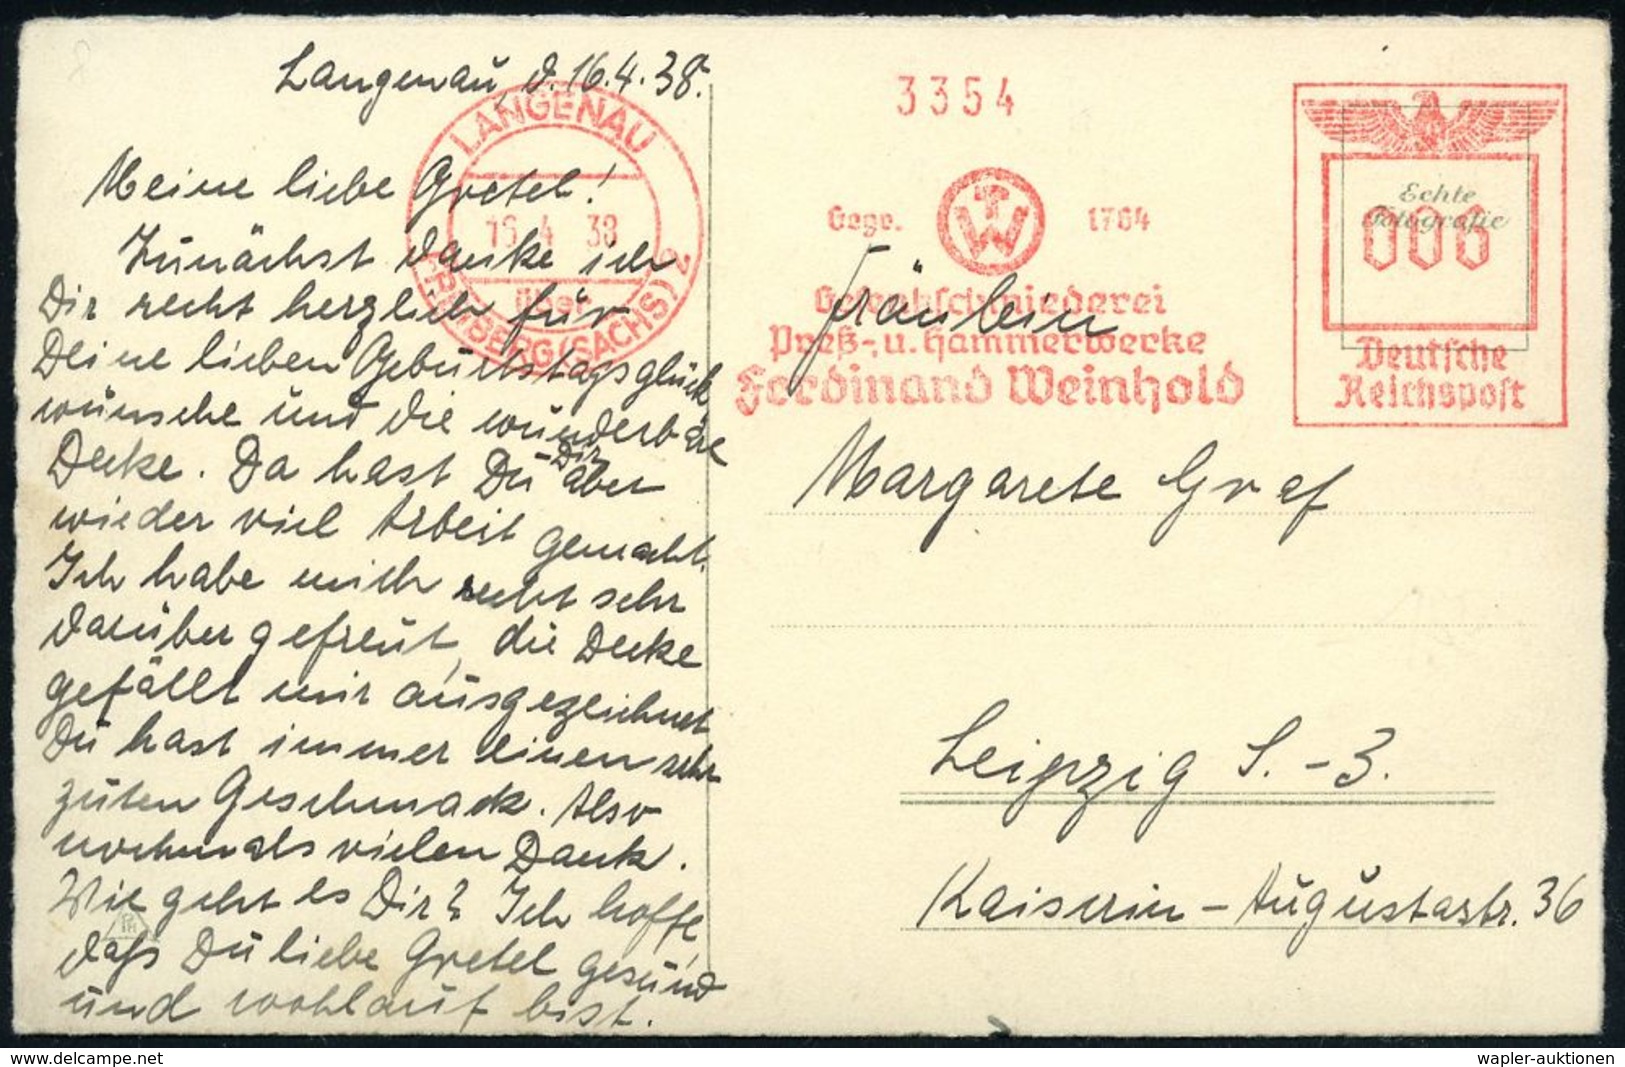 Langenau, d. 16.4.38.
Meine liebe Gretel!
Zunächst danke ich
Dir recht herzlich für
Deine lieben Geburtstagsglück
wünsche und die wunderbare
Decke. Da hast Du Dir aber
wieder viel Arbeit gemacht.
Ich habe mich recht sehr
darüber gefreut, die Decke
gefällt mir ausgezeichnet
Du hast immer einen sehr
guten Geschmack. Also
nochmals vielen Dank.
Wie geht es Dir? Ich hoffe,
daß Du liebe Gretel gesund
und wohlauf bist.
LANGENAU
16.4.38
über
FREIBERG (SACHS) 2
3354
Gegr. 1784
TW
Gesenkschmiederei
Preß-, u. Hammerwerke
Ferdinand Weinhold
Echte
Fotografie
006
Deutsche
Reichspost
Fräulein
Margarete Graf
Leipzig S.-3.
Kaiserin-Augustastr. 36
www.delcampe.net
wapler-auktionen